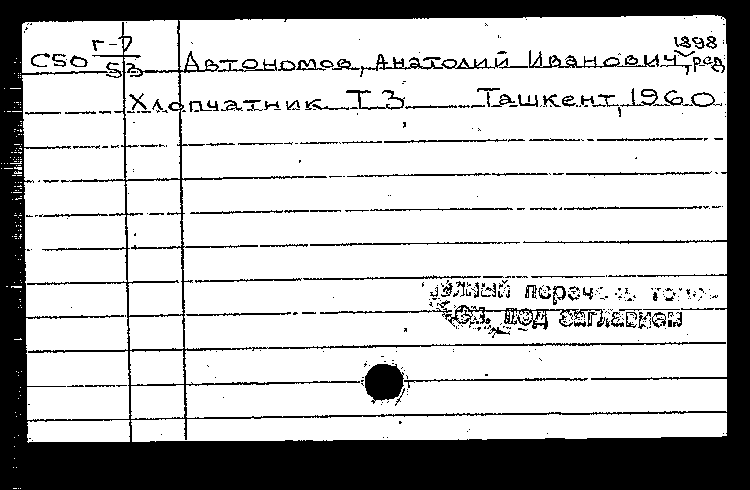 1898
С50 г-7/53 Автономов, Анатолий Иванович, ред
Хлопчатник Т 3 Ташкент, 1960
полный перечень томов
см. под заглавием